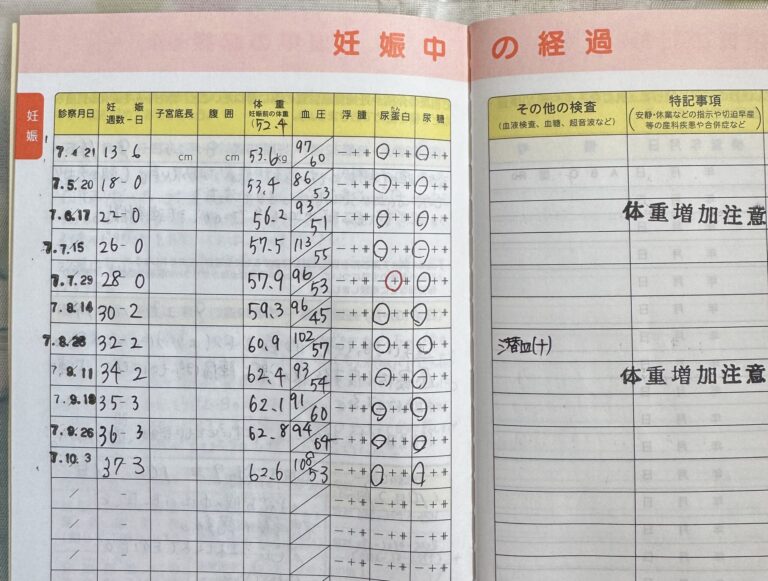 妊娠中の経過
妊娠
診察月日 妊娠週数-日 子宮底長 腹囲 体重 妊娠前の体重 (52.4 血圧 浮腫 尿蛋白 たん 尿糖 その他の検査 (血液検査、血糖、超音波など) 特記事項 (安静・休業などの指示や切迫早産等の産科疾患や合併症など)
7.4 21 13-6 cm cm 53.6kg 97/60 - + ++ - + ++ - + ++
7.5.20 18-0 53.4 86/53 - + ++ - + ++ - + ++
7.6.17 22-0 56.2 93/51 - + ++ - + ++ - + ++ 体重増加注意
7.7.15 26-0 57.5 113/55 - + ++ - + ++ - + ++
7.7.29 28-0 57.9 96/53 - + ++ - + ++ - + ++
7.8.14 30-2 59.3 96/45 - + ++ - + ++ - + ++
7.8.28 32-2 60.9 102/57 - + ++ - + ++ - + ++ 潜血(+)
7.9.11 34-2 62.4 93/54 - + ++ - + ++ - + ++ 体重増加注意
7.9.19 35-3 62.1 91/60 - + ++ - + ++ - + ++
7.9.26 36-3 62.8 94/64 - + ++ - + ++ - + ++
7.10.3 37-3 62.6 108/53 - + ++ - + ++ - + ++
/ - / - + ++ - + ++ - + ++
/ - / - + ++ - + ++ - + ++
/ - / - + ++ - + ++ - + ++